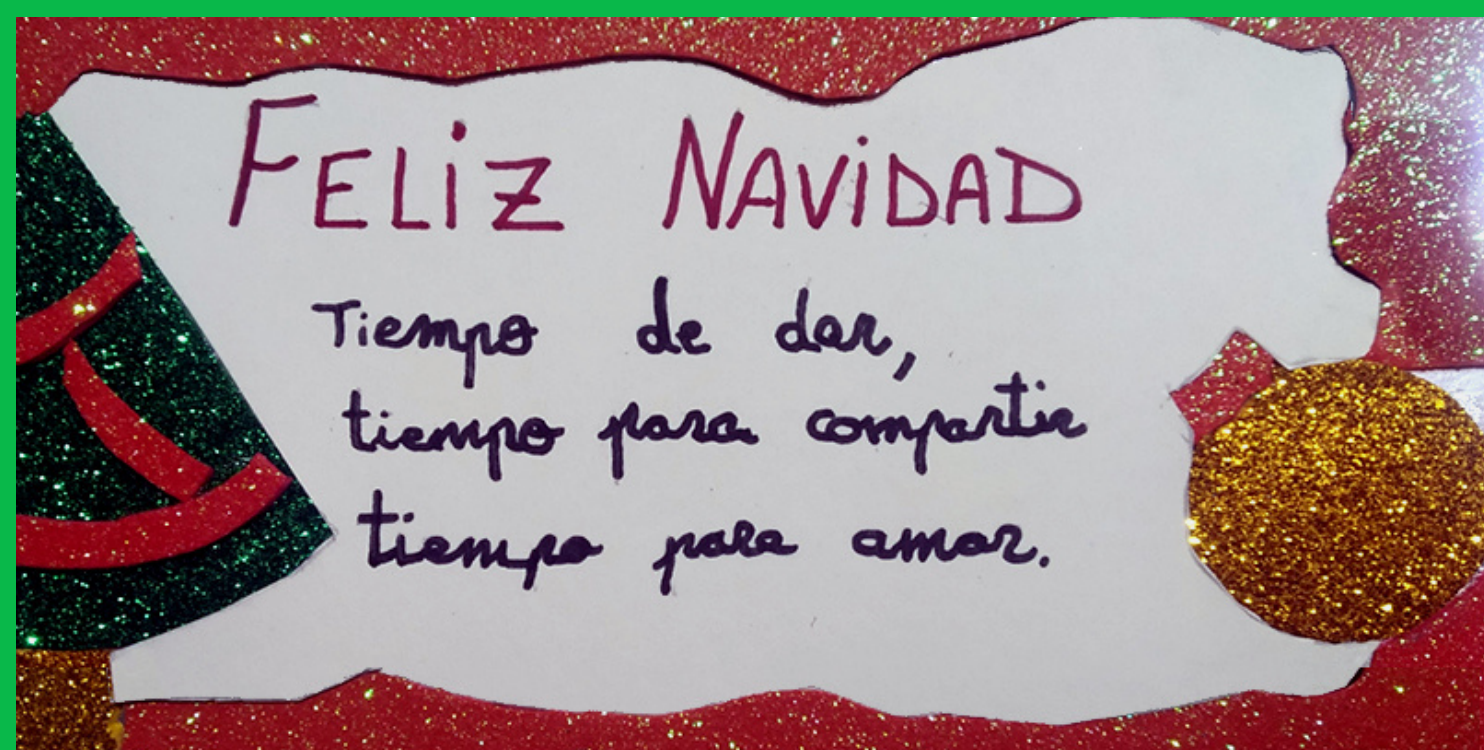 FELiZ NAViDAD
Tiempo de dar,
tiempo para compartir
tiempo para amar.